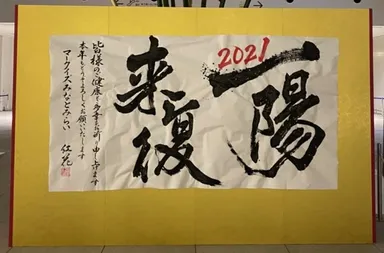 2021
一陽
来復
皆様のご健康と多幸をお祈り申し上げます
本年もどうぞよろしくお願いいたします
マークイズみなとみらい